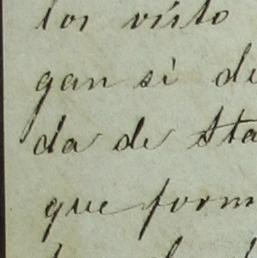 los visto
gan si de
da de Sta
que form